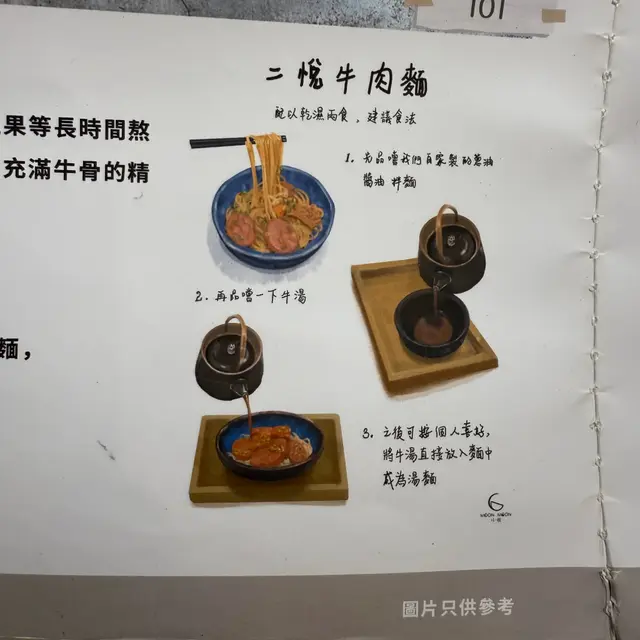 101
果等長時間熬
充滿牛骨的精
麵，
二悅牛肉麵
配以乾濕兩食，建議食法
1. 先品嚐我們自家製的蔥油
醬油 拌麵
2. 再品嚐一下牛湯
3. 之後可按個人喜好，
將牛湯直接放入麵中
成為湯麵
MOON MOON
圖片只供參考